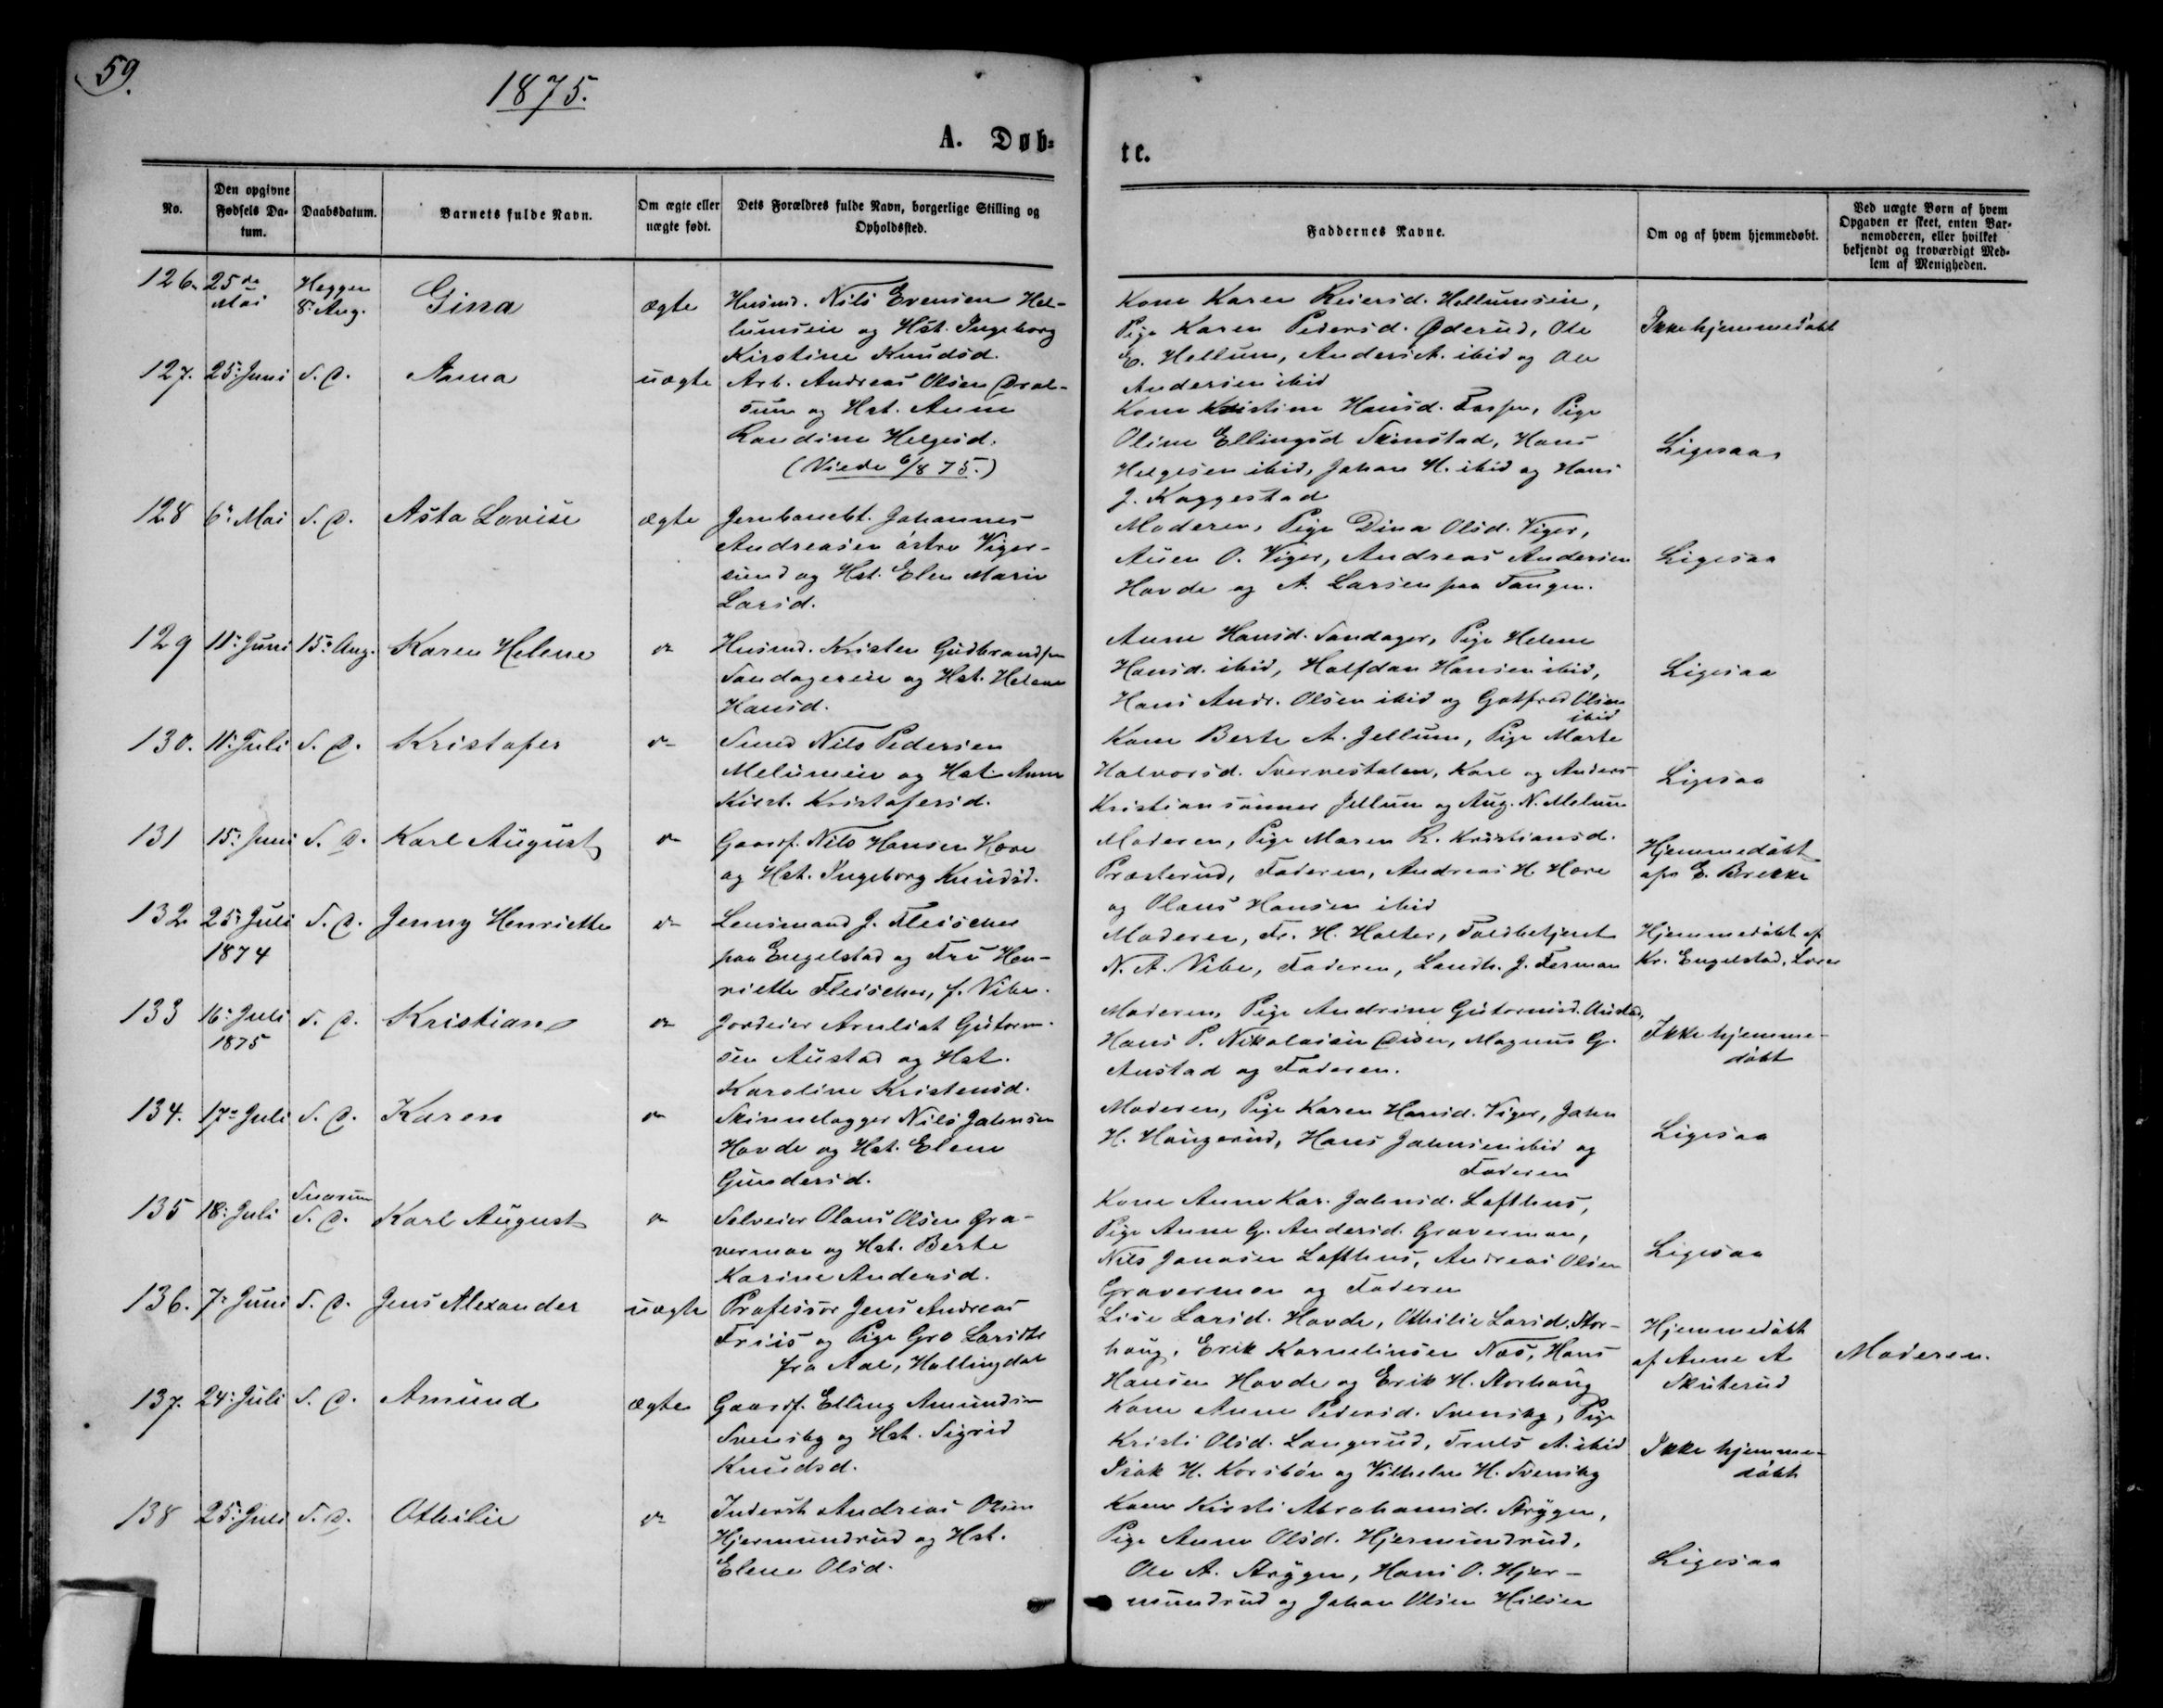 59.
1875.
A. Døb=
te.
No.
Den opgivne Fødsels Da-tum.
Daabsdatum.
Barnets fulde Navn.
Om ægte eller uægte født.
Dets Forældres fulde Navn, borgerlige Stilling og Opholdssted.
Faddernes Navne.
Om og af hvem hjemmedøbt.
Ved uægte Børn af hvem Opgaven er skeet, enten Bar-nemoderen, eller hvilket bekjendt og troværdigt Med-lem af Menigheden.
126. 25de Mai
Heggen 8: Aug.
Gina
ægte
Husmd. Nils Evensen Hel-
lumseie og Hst. Ingeborg
Kirstine Knudsd.
Kone Karen Reiersd. Hellumseie,
Pige Karen Pedersd. Øderud, Ole
E. Hellum, Anders A. ibid og Ole
Andersen ibid
Ikke hjemmedøbt
127. 25: Juni S. D.
Anna
uægte
Arb. Andreas Olsen
sum og Hst. Anne
Randine Helgesd.
(Viede 6/8 75.)
Kone Kristine Hansd. Pige
Oline Ellingsd Skinstad, Hans
Helgesen ibid, Johan H. ibid og Hans
J. Kaggestad
Ligesaa
128 6: Mai S. D.
Asta Lovise
ægte
Jernbanebt. Johannes
Andreasen østre Viger-
sund og Hst. Elen Marie
Larsd.
Moderen, Pige Dina Olsd. Viger,
O. Viger, Andreas Andersen
Hovde og A. Larsen paa Tangen.
Ligesaa
129 11: Juni 15: Aug.
Karen Helene
do
Husmd. Kristen Gudbrandsen
Sandagereie og Hst. Helene
Hansd.
Anne Hansd. Sandager, Pige Helene
Hansd. ibid, Halfdan Hansen ibid,
Hans Andr. Olsen ibid og Gotfred Olsen
ibid
Ligesaa
130. 11: Juli S. D.
Kristofer
do
Smed Nils Pedersen
Melumeie og Hst. Anne
Kirst. Kristofersd.
Kone Berte A. Jellum, Pige Marte
Halvorsd. Karl og Anders
Kristiansønner Jellum og Aug. N. Melum
Ligesaa
131 15: Juni S. D.
Karl August
do
Gaardf. Nils Hansen Hære
og Hst. Ingeborg Knudsd.
Moderen, Pige Maren R. Kristiansd.
Præsterud, Faderen, Andreas H. Hære
og Olaus Hansen ibid
Hjemmedøbt
af E. Brekke
132 25: Juli 1874 S. D.
Jenny Henriette
do
Lensmand J. Fleischer
paa Engelstad og Fru Hen-
riette Fleischer, f. Vibe.
Moderen, Fr. H. Holter, Toldbetjent
N. A. Vibe, Faderen, Landh. J. Ferman
Hjemmedøbt af
Kr. Engelstad,
133 16: Juli 1875 S. D.
Kristian
do
Jordeier Arnliat Gutorm-
sen Austad og Hst.
Karoline Kristensd.
Moderen, Pige Andrine Gutormsd. Austad,
Hans P. Nikolaisen Magnus G.
Austad og Faderen.
Ikke hjemme-
døbt
134. 17: Juli S. D.
Karen
do
Skinnelægger Nils Johnsen
Hovde og Hst. Elene
Gundersd.
Moderen, Pige Karen Hansd. Viger, John
H. Haugerud, Hans Johnsen ibid og
Faderen
Ligesaa
135 18: Juli
Snarum S. D.
Karl August
do
Selveier Olaus Olsen Gra-
vermoe og Hst. Berte
Karine Andersd.
Kone Anne Kar. Johnsd. Lofthus,
Pige Anne G. Andersd. Gravermoe,
Nils Jonasen Lofthus, Andreas Olsen
Gravermoe og Faderen
Ligesaa
136. 7: Juni S. D.
Jens Alexander
uægte
Professor Jens Andreas
Friis og Pige Gro Larsdtr
fra Aal, Hallingdal
Lise Larsd. Hovde, Othilie Larsd. Stor-
haug, Erik Kornelinsen Næs, Hans
Hansen Hovde og Erik H. Storhaug
Hjemmedøbt
af Anne A
Skuterud
Moderen.
137. 24: Juli S. D.
Amund
ægte
Gaardf. Elling Amundsen
Svensby og Hst. Sigrid
Knudsd.
Kone Anne Pedersd. Svensby, Pige
Kristi Olsd. Langerud, Truls A. ibid
Isak H. Korsbøn og Vilhelm H. Svensby
Ikke hjemme-
døbt
138 25: Juli S. D.
Othilie
do
Inderst Andreas Olsen
Hjermundrud og Hst.
Elene Olsd.
Kone Kirsti Abrahamsd. Strygen,
Pige Anne Olsd. Hjermundrud,
Ole A. Strygen, Hans O. Hjer-
mundrud og Johan Olsen Hilsen
Ligesaa